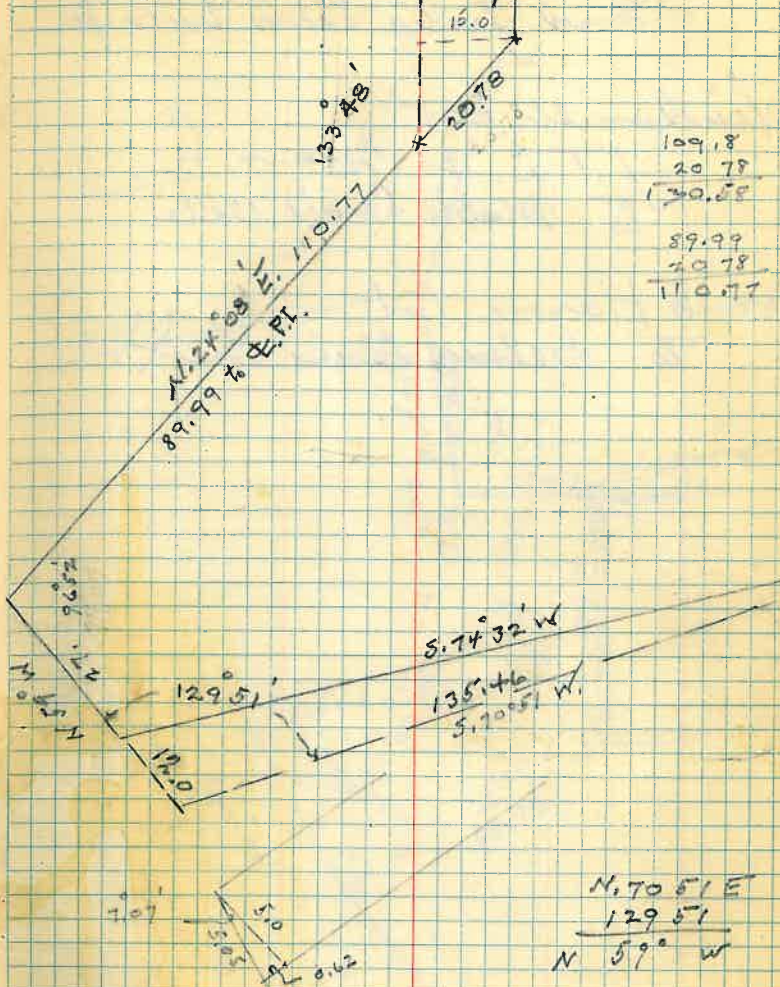 15.0
20.78
133° 48'
109.8
20 78
130.58
89.99
20 78
110.77
N. 24° 08' E. 110.77
89.99 to ₵ P.I.
96° 52'
27.
N 59° W
S. 74° 32' W
129° 51'
135.46
S. 70° 51' W.
12.0
7° 07'
5.0
5.03
0.62
N. 70 51 E
129 51
N 59° W